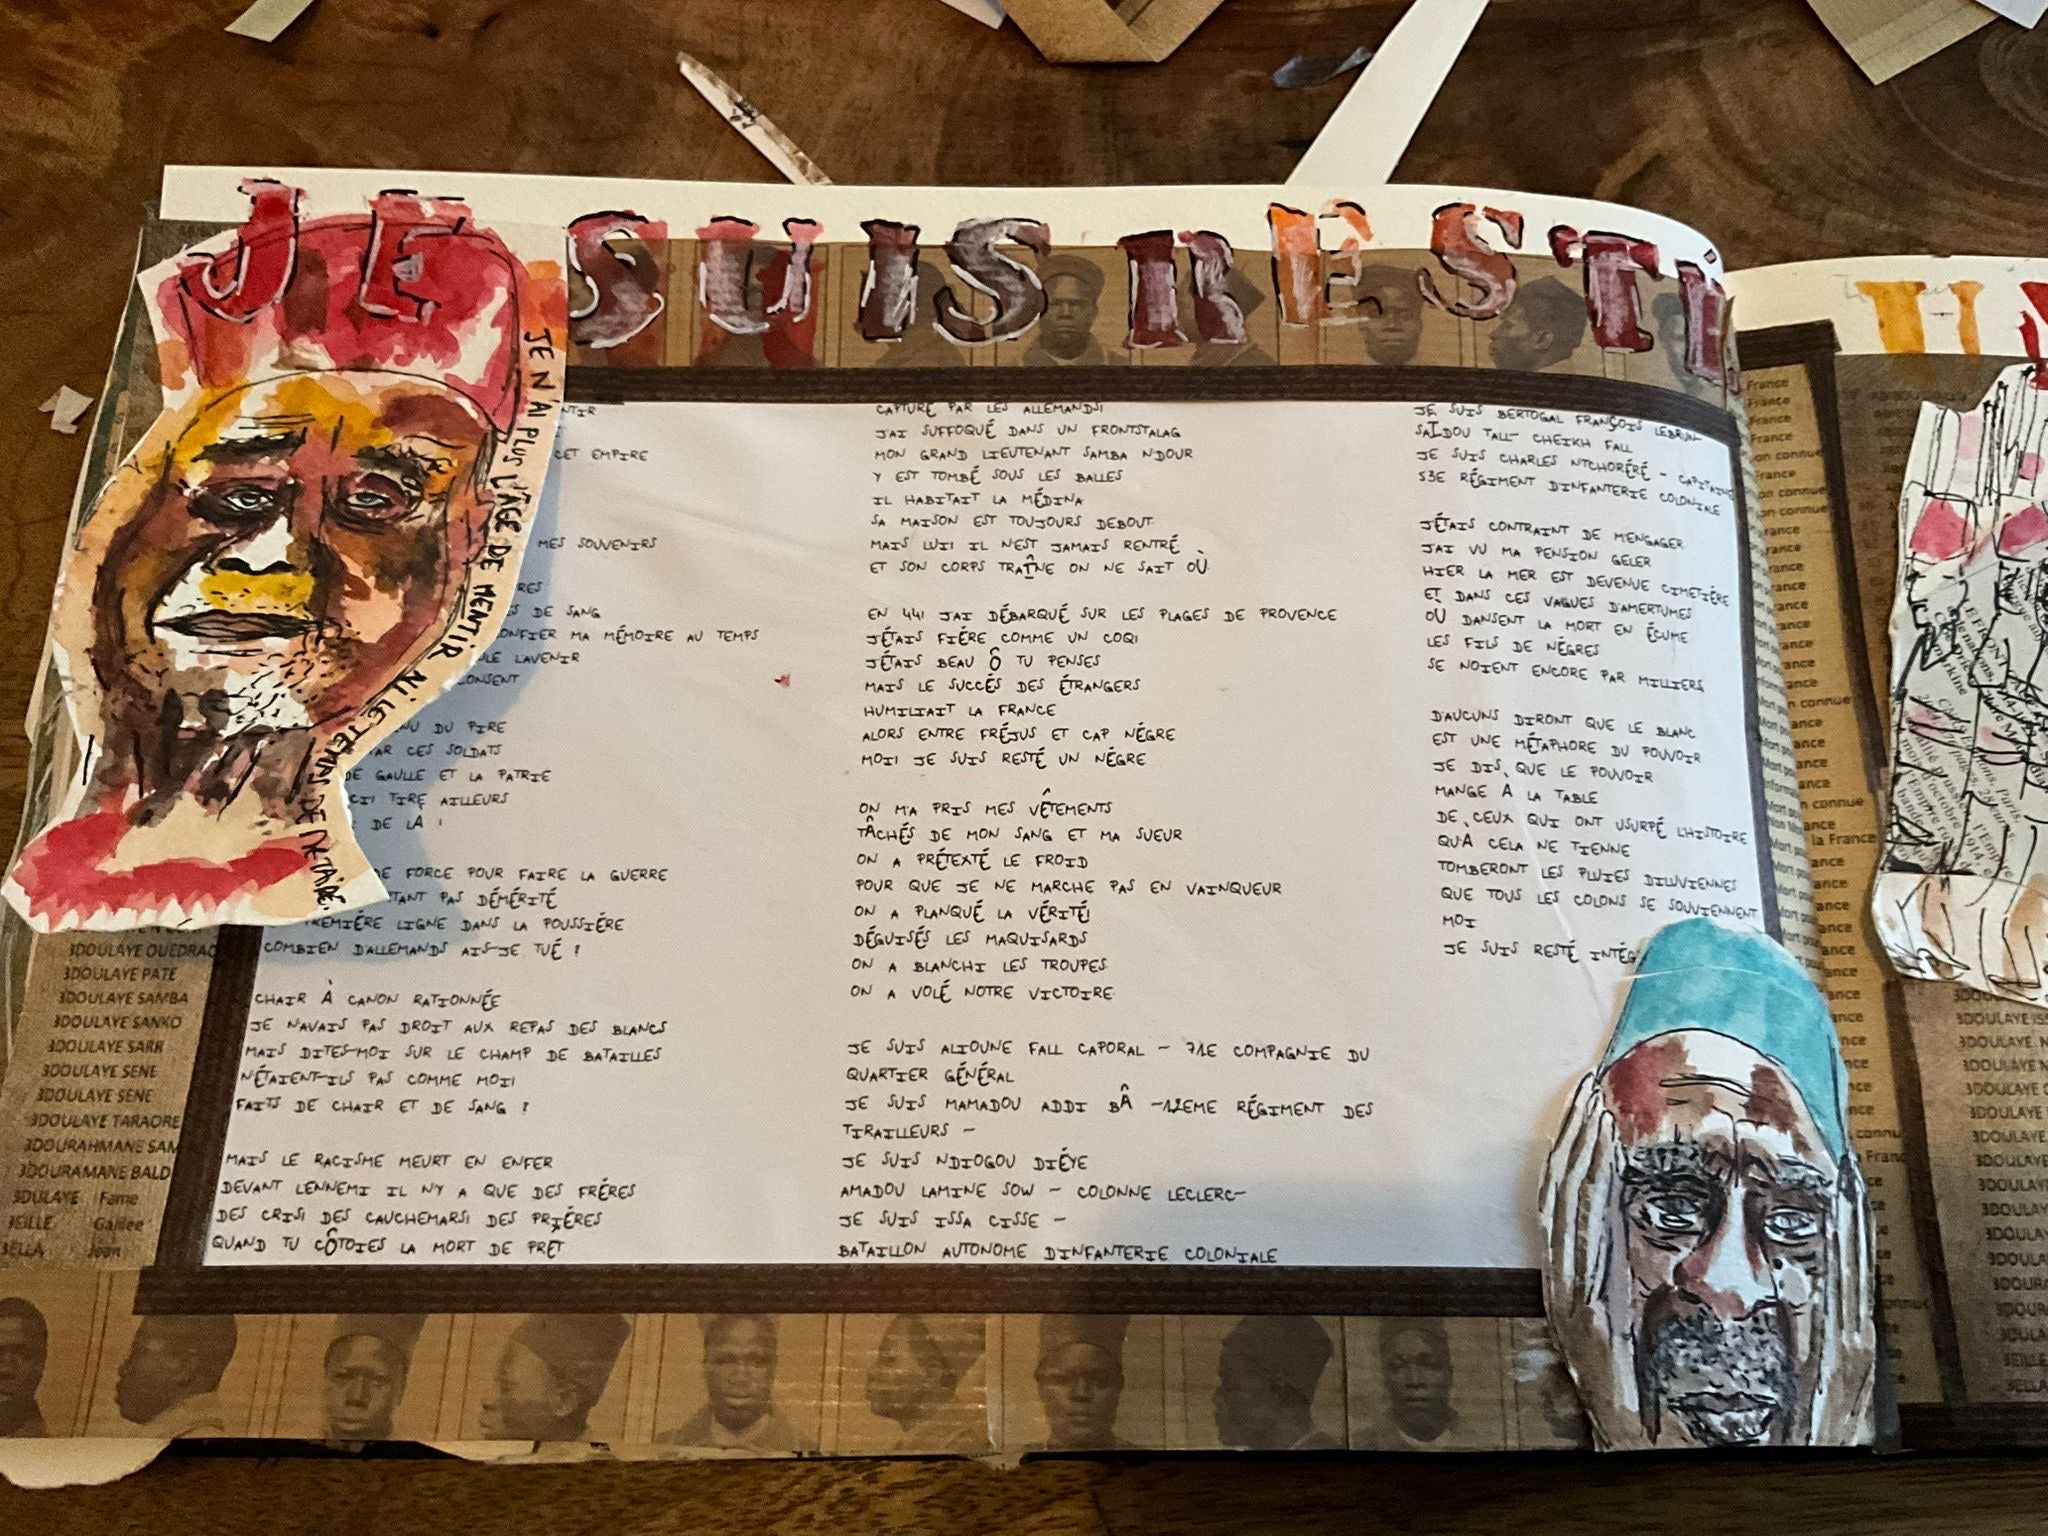 JE SUIS RESTI
JE N'AI PLUS L'ÂGE DE MENTIR NI LE TEMPS DE ME TAIRE.
NTIR
CET EMPIRE
MES SOUVENIRS
RES
S DE SANG
ONFIER MA MÉMOIRE AU TEMPS
LE LAVENIR
ONSENT
NU DU PIRE
AR CES SOLDATS
DE GAULLE ET LA PATRIE
CI! TIRE AILLEURS
DE LÀ !
DE FORCE POUR FAIRE LA GUERRE
TANT PAS DÉMÉRITÉ
PREMIÈRE LIGNE DANS LA POUSSIÈRE
COMBIEN D'ALLEMANDS AIS-JE TUÉ ?
CHAIR À CANON RATIONNÉE
JE NAVAIS PAS DROIT AUX REPAS DES BLANCS
MAIS DITES-MOI SUR LE CHAMP DE BATAILLES
NÉTAIENT-ILS PAS COMME MOI!
FAITS DE CHAIR ET DE SANG ?
MAIS LE RACISME MEURT EN ENFER
DEVANT LENNEMI IL NY A QUE DES FRÈRES
DES CRIS! DES CAUCHEMARS! DES PRIÈRES
QUAND TU CÔTOIES LA MORT DE PRÊT
CAPTURÉ PAR LES ALLEMANDS!
JAI SUFFOQUÉ DANS UN FRONTSTALAG
MON GRAND LIEUTENANT SAMBA NDOUR
Y EST TOMBÉ SOUS LES BALLES
IL HABITAIT LA MÉDINA
SA MAISON EST TOUJOURS DEBOUT
MAIS LUI! IL NEST JAMAIS RENTRÉ
ET SON CORPS TRAÎNE ON NE SAIT OÙ
EN 44! JAI DÉBARQUÉ SUR LES PLAGES DE PROVENCE
JÉTAIS FIÈRE COMME UN COQ!
JÉTAIS BEAU Ô TU PENSES
MAIS LE SUCCÈS DES ÉTRANGERS
HUMILIAIT LA FRANCE
ALORS ENTRE FRÉJUS ET CAP NÈGRE
MOI! JE SUIS RESTÉ UN NÈGRE
ON MA PRIS MES VÊTEMENTS
TÂCHÉS DE MON SANG ET MA SUEUR
ON A PRÉTEXTÉ LE FROID
POUR QUE JE NE MARCHE PAS EN VAINQUEUR
ON A PLANQUÉ LA VÉRITÉ!
DÉGUISÉS LES MAQUISARDS
ON A BLANCHI LES TROUPES
ON A VOLÉ NOTRE VICTOIRE
JE SUIS ALIOUNE FALL CAPORAL - 71E COMPAGNIE DU
QUARTIER GÉNÉRAL
JE SUIS MAMADOU ADDI BÂ -12EME RÉGIMENT DES
TIRAILLEURS -
JE SUIS NDIOGOU DIÉYE
AMADOU LAMINE SOW - COLONNE LECLERC-
JE SUIS ISSA CISSE -
BATAILLON AUTONOME DINFANTERIE COLONIALE
JE SUIS BERTOGAL FRANÇOIS LEBRUN
SAÏDOU TALL- CHEIKH FALL
JE SUIS CHARLES NTCHORÉRÉ - CAPITAINE
53E RÉGIMENT DINFANTERIE COLONIALE
JÉTAIS CONTRAINT DE MENGAGER
JAI VU MA PENSION GELER
HIER LA MER EST DEVENUE CIMETIÈRE
ET DANS CES VAGUES DAMERTUMES
OÙ DANSENT LA MORT EN ÉCUME
LES FILS DE NÈGRES
SE NOIENT ENCORE PAR MILLIERS
D'AUCUNS DIRONT QUE LE BLANC
EST UNE MÉTAPHORE DU POUVOIR
JE DIS, QUE LE POUVOIR
MANGE À LA TABLE
DE CEUX QUI ONT USURPÉ LHISTOIRE
QU'À CELA NE TIENNE
TOMBERONT LES PLUIES DILUVIENNES
QUE TOUS LES COLONS SE SOUVIENNENT
MOI
JE SUIS RESTÉ INTÈG
3DOULAYE OUEDRAO
3DOULAYE PATE
3DOULAYE SAMBA
3DOULAYE SANKO
3DOULAYE SARR
3DOULAYE SENE
3DOULAYE SENE
3DOULAYE TARAORE
3DOURAHMANE SAM
3DOURAMANE BALD
3DULAYE Fame
3EILLE Galilee
3ELLA Jean